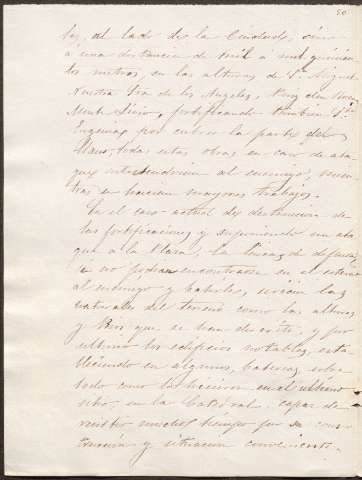 50
al lado de la Ciudad, 
a una distancia de mil á mil quinien
tos metros, en las alturas de Sn Miguel
Nuestra Sra de los Angeles, Puig den Roca
Mont Livio, fortificando tambien Sta
Eugenia por cubrir la parte del
llano, todas estas obras en caso de ata
que entretendrian al enemigo, mien
tras se hacian mayores trabajos.
En el caso actual de destruccion de
las fortificaciones y suponiendo un ata
que a la Plaza, la linea de defensa,
si no podian encontrarse en el esterior
al enemigo y batirle, serian las
naturales del terreno como las alturas
y Rios que se han descrito, y por
ultimo los edificios notables, esta
bleciendo en algunos, baterias, sobre
todo como las hicieron en el ultimo
sitio, en la Catedral, capaz de
resistir mucho tiempo por su cons
truccion y situacion conveniente.